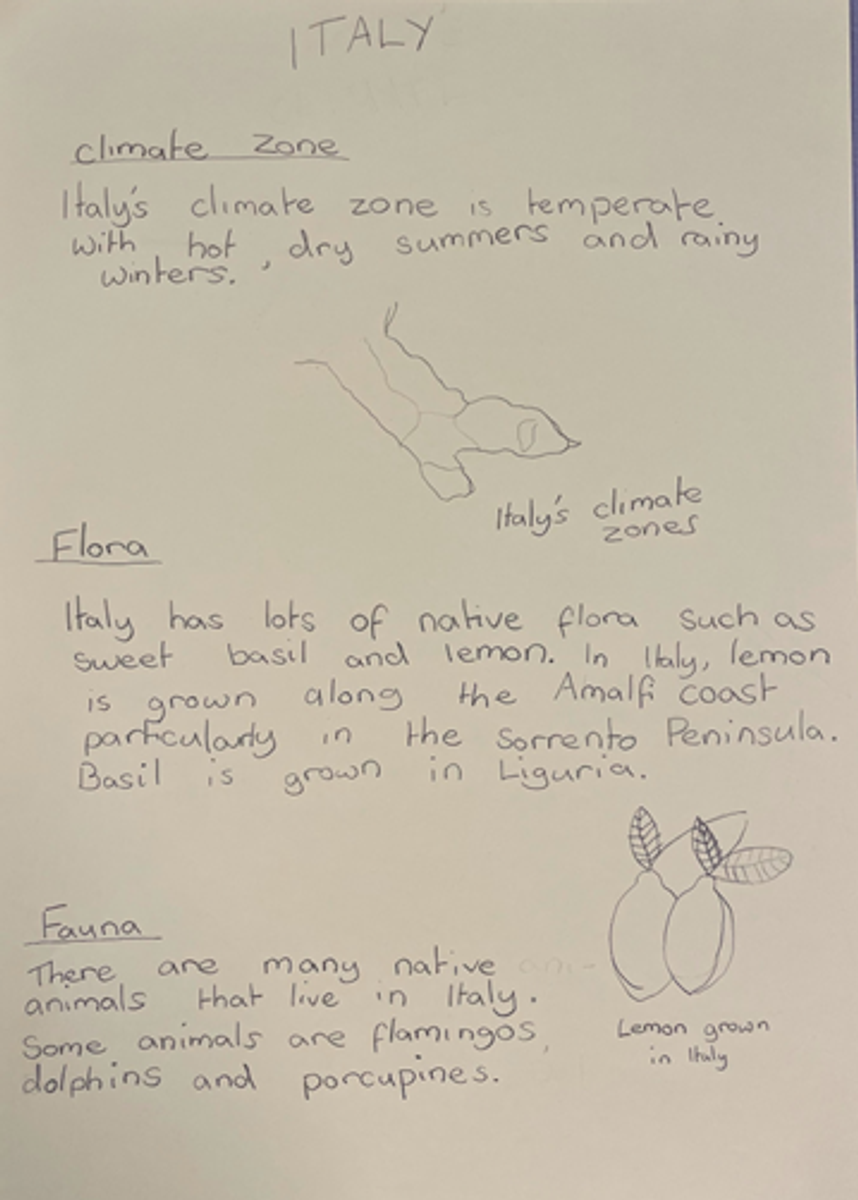 ITALY
climate zone
Italy's climate zone is temperate
with hot, dry summers and rainy
winters.
Italy's climate
zones
Flora
Italy has lots of native flora such as
sweet basil and lemon. In Italy, lemon
is grown along the Amalfi coast
particularly in the Sorrento Peninsula.
Basil is grown in Liguria.
Fauna
There are many native
animals that live in Italy.
Some animals are flamingos,
dolphins and porcupines.
Lemon grown
in Italy